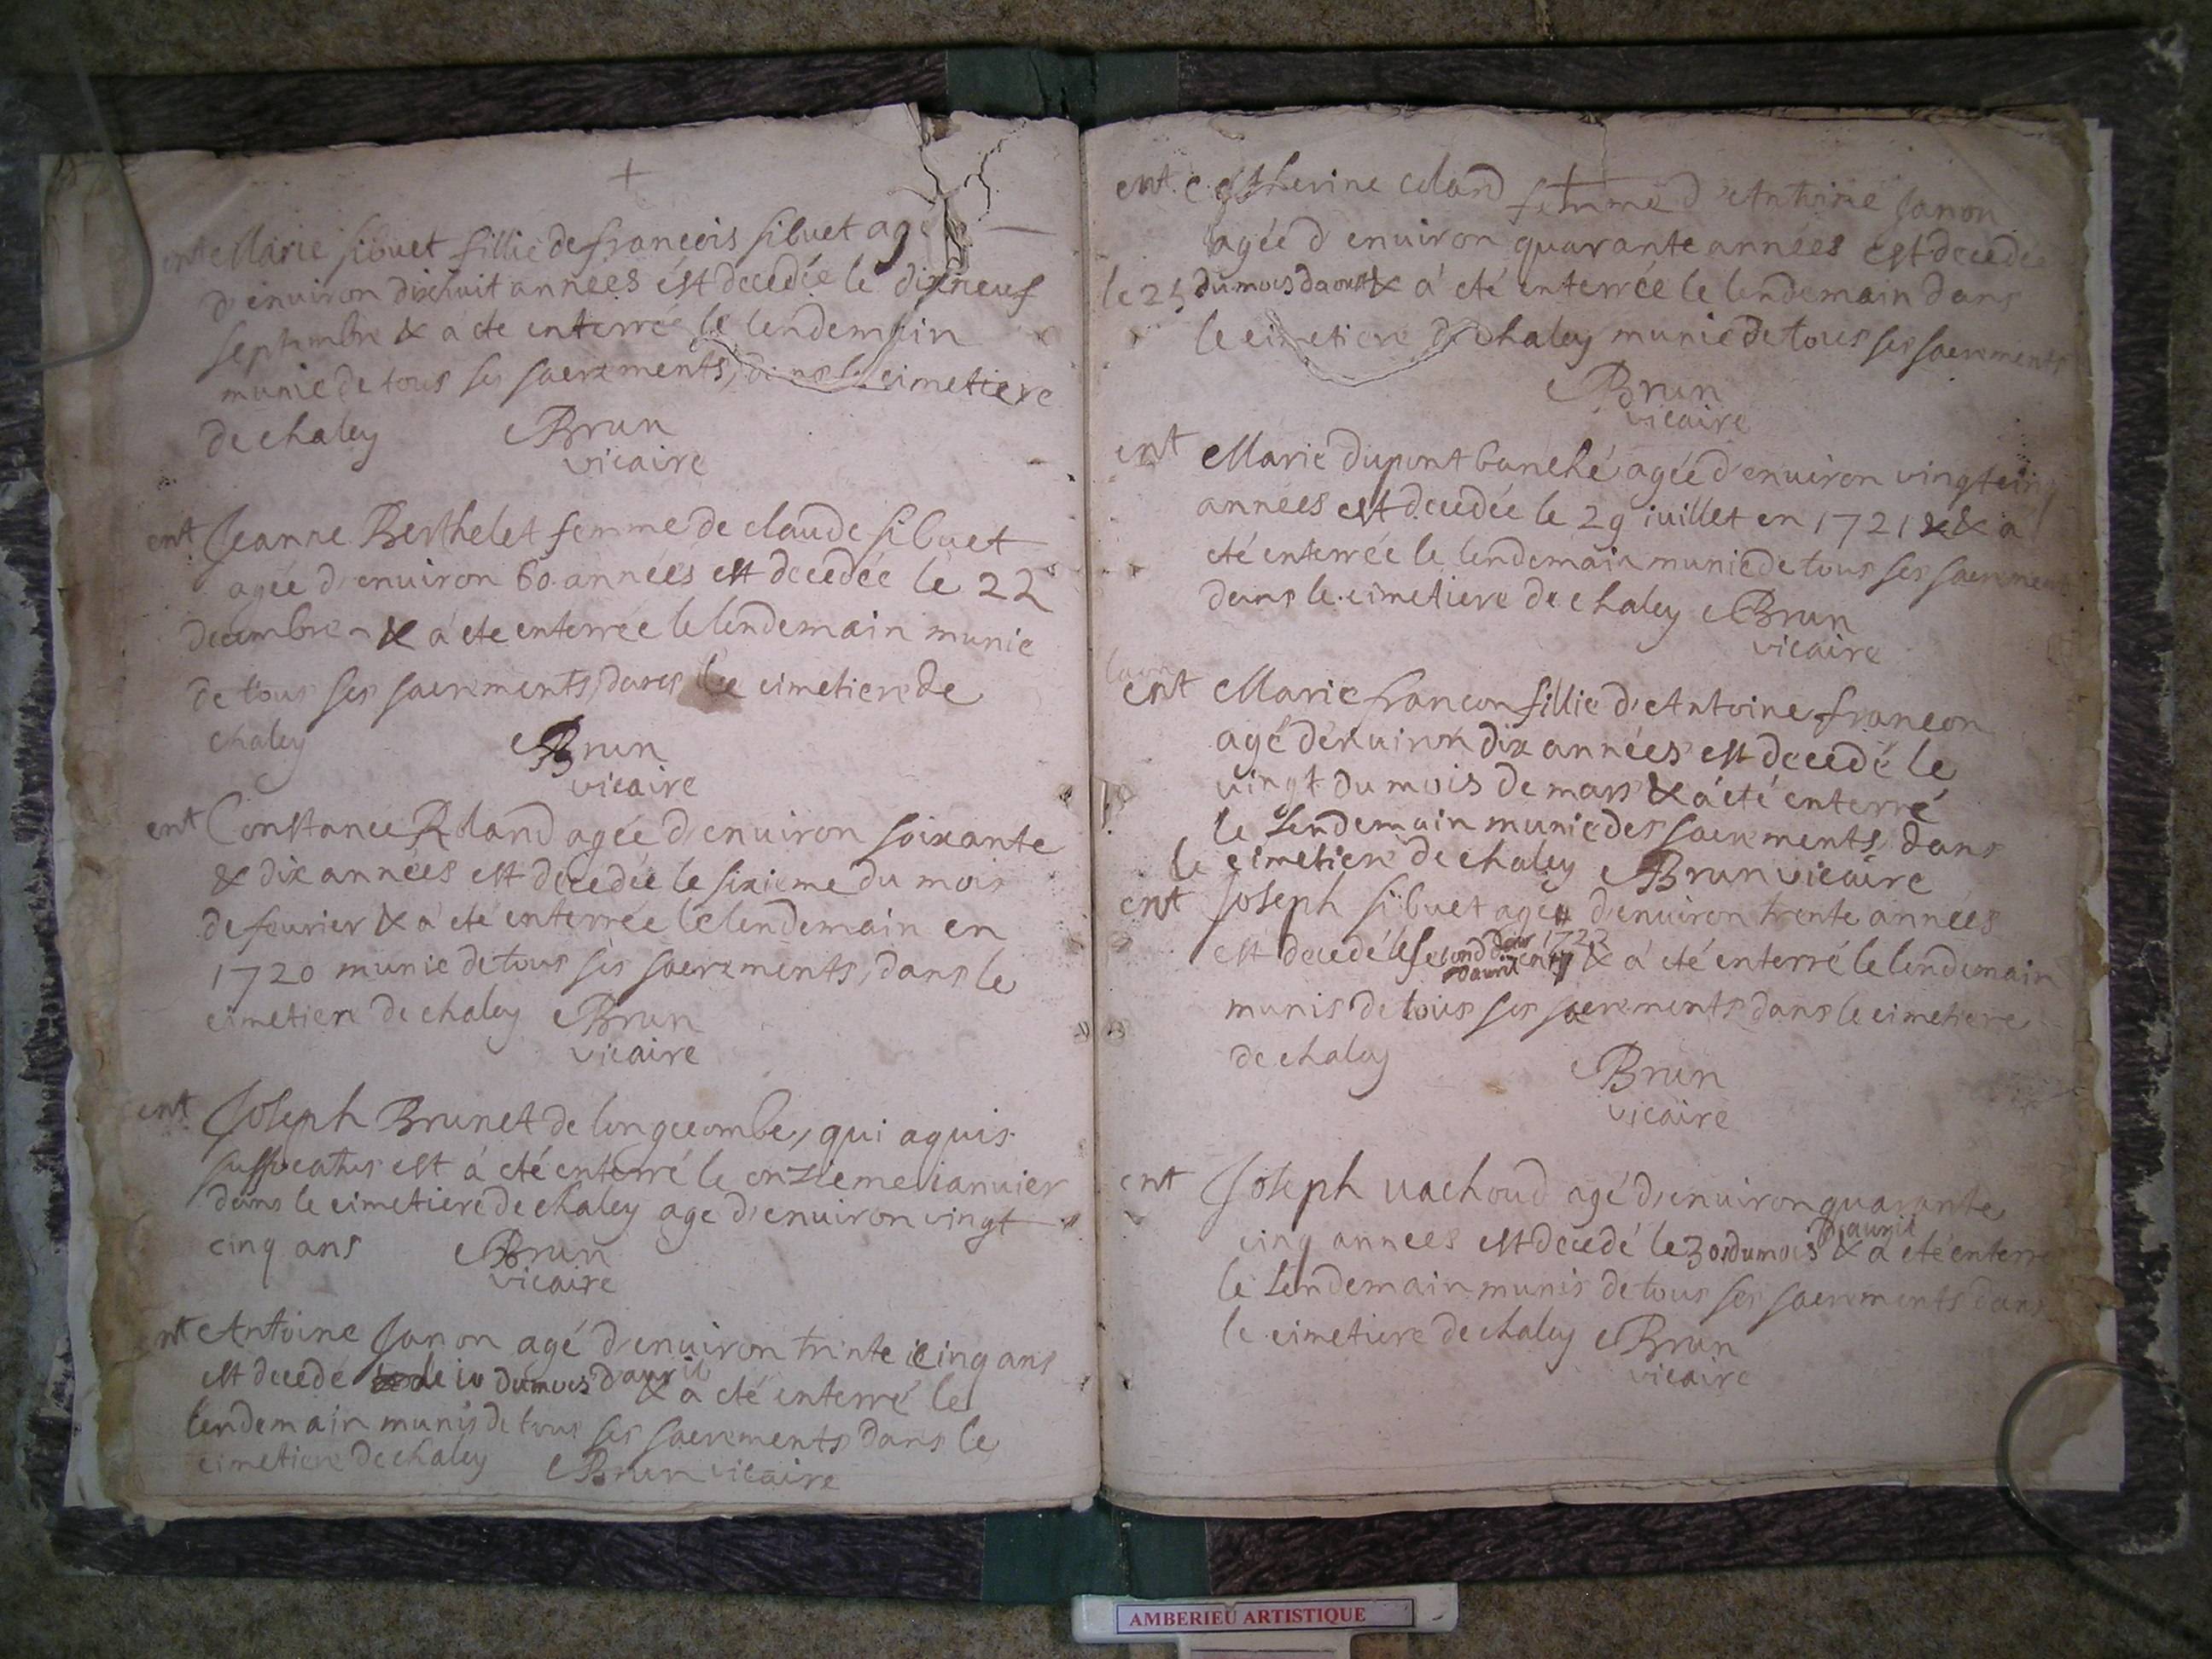 ent Marie sibuet fillie de francois sibuet agé
d'enuiron dixhuit annees ést decedée le dixneuf
septembre & a ete enterrée le lendemain
munie de tous ses sacrements, dans le cimetiere
de chaley Brun
vicaire
ent Jeanne Berthelet femme de claude sibuet
agée d'enuiron 60 années est decedée le 22
decembre & a ete enterrée le lendemain munie
de tous ses sacrements, dans le cimetiere de
chaley Brun
vicaire
ent Constance Roland agée d'enuiron soixante
& dix années est decedée le sixieme du mois
de feurier & a eté enterrée le lendemain en
1720 munie de tous ses sacrements, dans le
cimetiere de chaley Brun
vicaire
ent Joseph Brunet de longecombe, qui aquis
suffocatus est à eté enterré le onzieme ianuier
dans le cimetiere de chaley age d'enuiron vingt
cinq ans Brun
vicaire
ent Antoine Janon agé d'enuiron trinte cinq ans
est decedé le 10 du mois d'auril & a eté enterré le
lendemain munis de tous ses sacrements dans le
cimetiere de chaley Brun vicaire
ent Catherine Coland femme d'Antoine Janon
agée d'enuiron quarante années est decedée
le 25 du mois daoust & à eté enterrée le lendemain dans
le cimetiere de chaley munie de tous ses sacrements
Brun
vicaire
ent Marie dupont banché agée d'enuiron vingt cinq
années est decedée le 29 iuillet en 1721 & a
eté enterrée le lendemain munie de tous ses sacrement
dans le cimetiere de chaley Brun
vicaire
ent Marie françon fillie d'Antoine françon
agé dénuiron dix années est decedé le
vingt du mois de mars & à eté enterré
le Lendemain munie des sacrements dans
le cimetiere de chaley Brun vicaire
ent Joseph sibuet agé d'enuiron trente années
est decedé le second dauril 1722 & à eté enterré le lendemain
munis de tous ses sacrements dans le cimetiere
de chaley Brun
vicaire
ent Joseph vachoud agé d'enuiron quarante
cinq annees est decedé le 30 du mois d'auril & a eté enterré
le Lendemain munis de tous ses sacrements dans
le cimetiere de chaley Brun
vicaire
AMBERIEU ARTISTIQUE